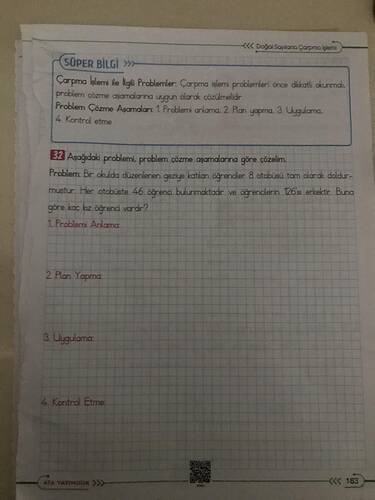 <<< Doğal Sayılarla Çarpma İşlemi
SÜPER BİLGİ >>>
Çarpma İşlemi ile İlgili Problemler: Çarpma işlemi problemleri önce dikkatli okunmalı,
problem çözme aşamalarına uygun olarak çözülmelidir.
Problem Çözme Aşamaları: 1. Problemi anlama, 2. Plan yapma, 3. Uygulama,
4. Kontrol etme
32 Aşağıdaki problemi, problem çözme aşamalarına göre çözelim.
Problem: Bir okulda düzenlenen geziye katılan öğrenciler 8 otobüsü tam olarak doldur-
muştur. Her otobüste 46 öğrenci bulunmaktadır ve öğrencilerin 126'sı erkektir. Buna
göre kaç kız öğrenci vardır?
1. Problemi Anlama:
2. Plan Yapma:
3. Uygulama:
4. Kontrol Etme:
ATA YAYINCILIK >>>
<<< 163